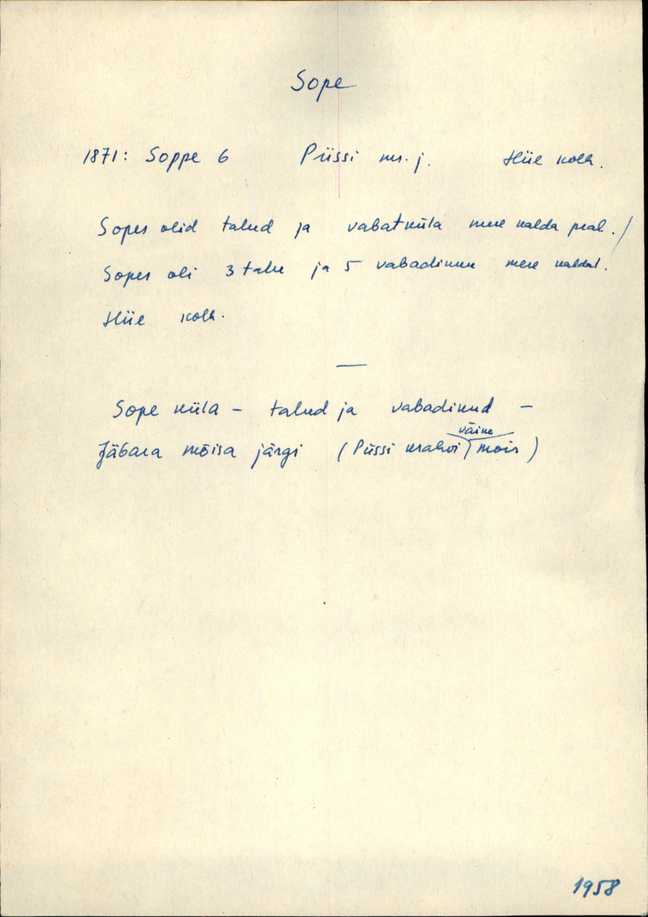 Sope
1871: Soppe 6 Püssi ms. j. Hüe kolh.
Sopes olid talud ja vabatküla mere kalda peal. /
Sopes oli 3 talu ja 5 vabadikku mere kaldal.
Hüe kolh.
—
Sope küla – talud ja vabadikud –
väike
Jäbara mõisa järgi (Püssi krahvi mõis)
1958